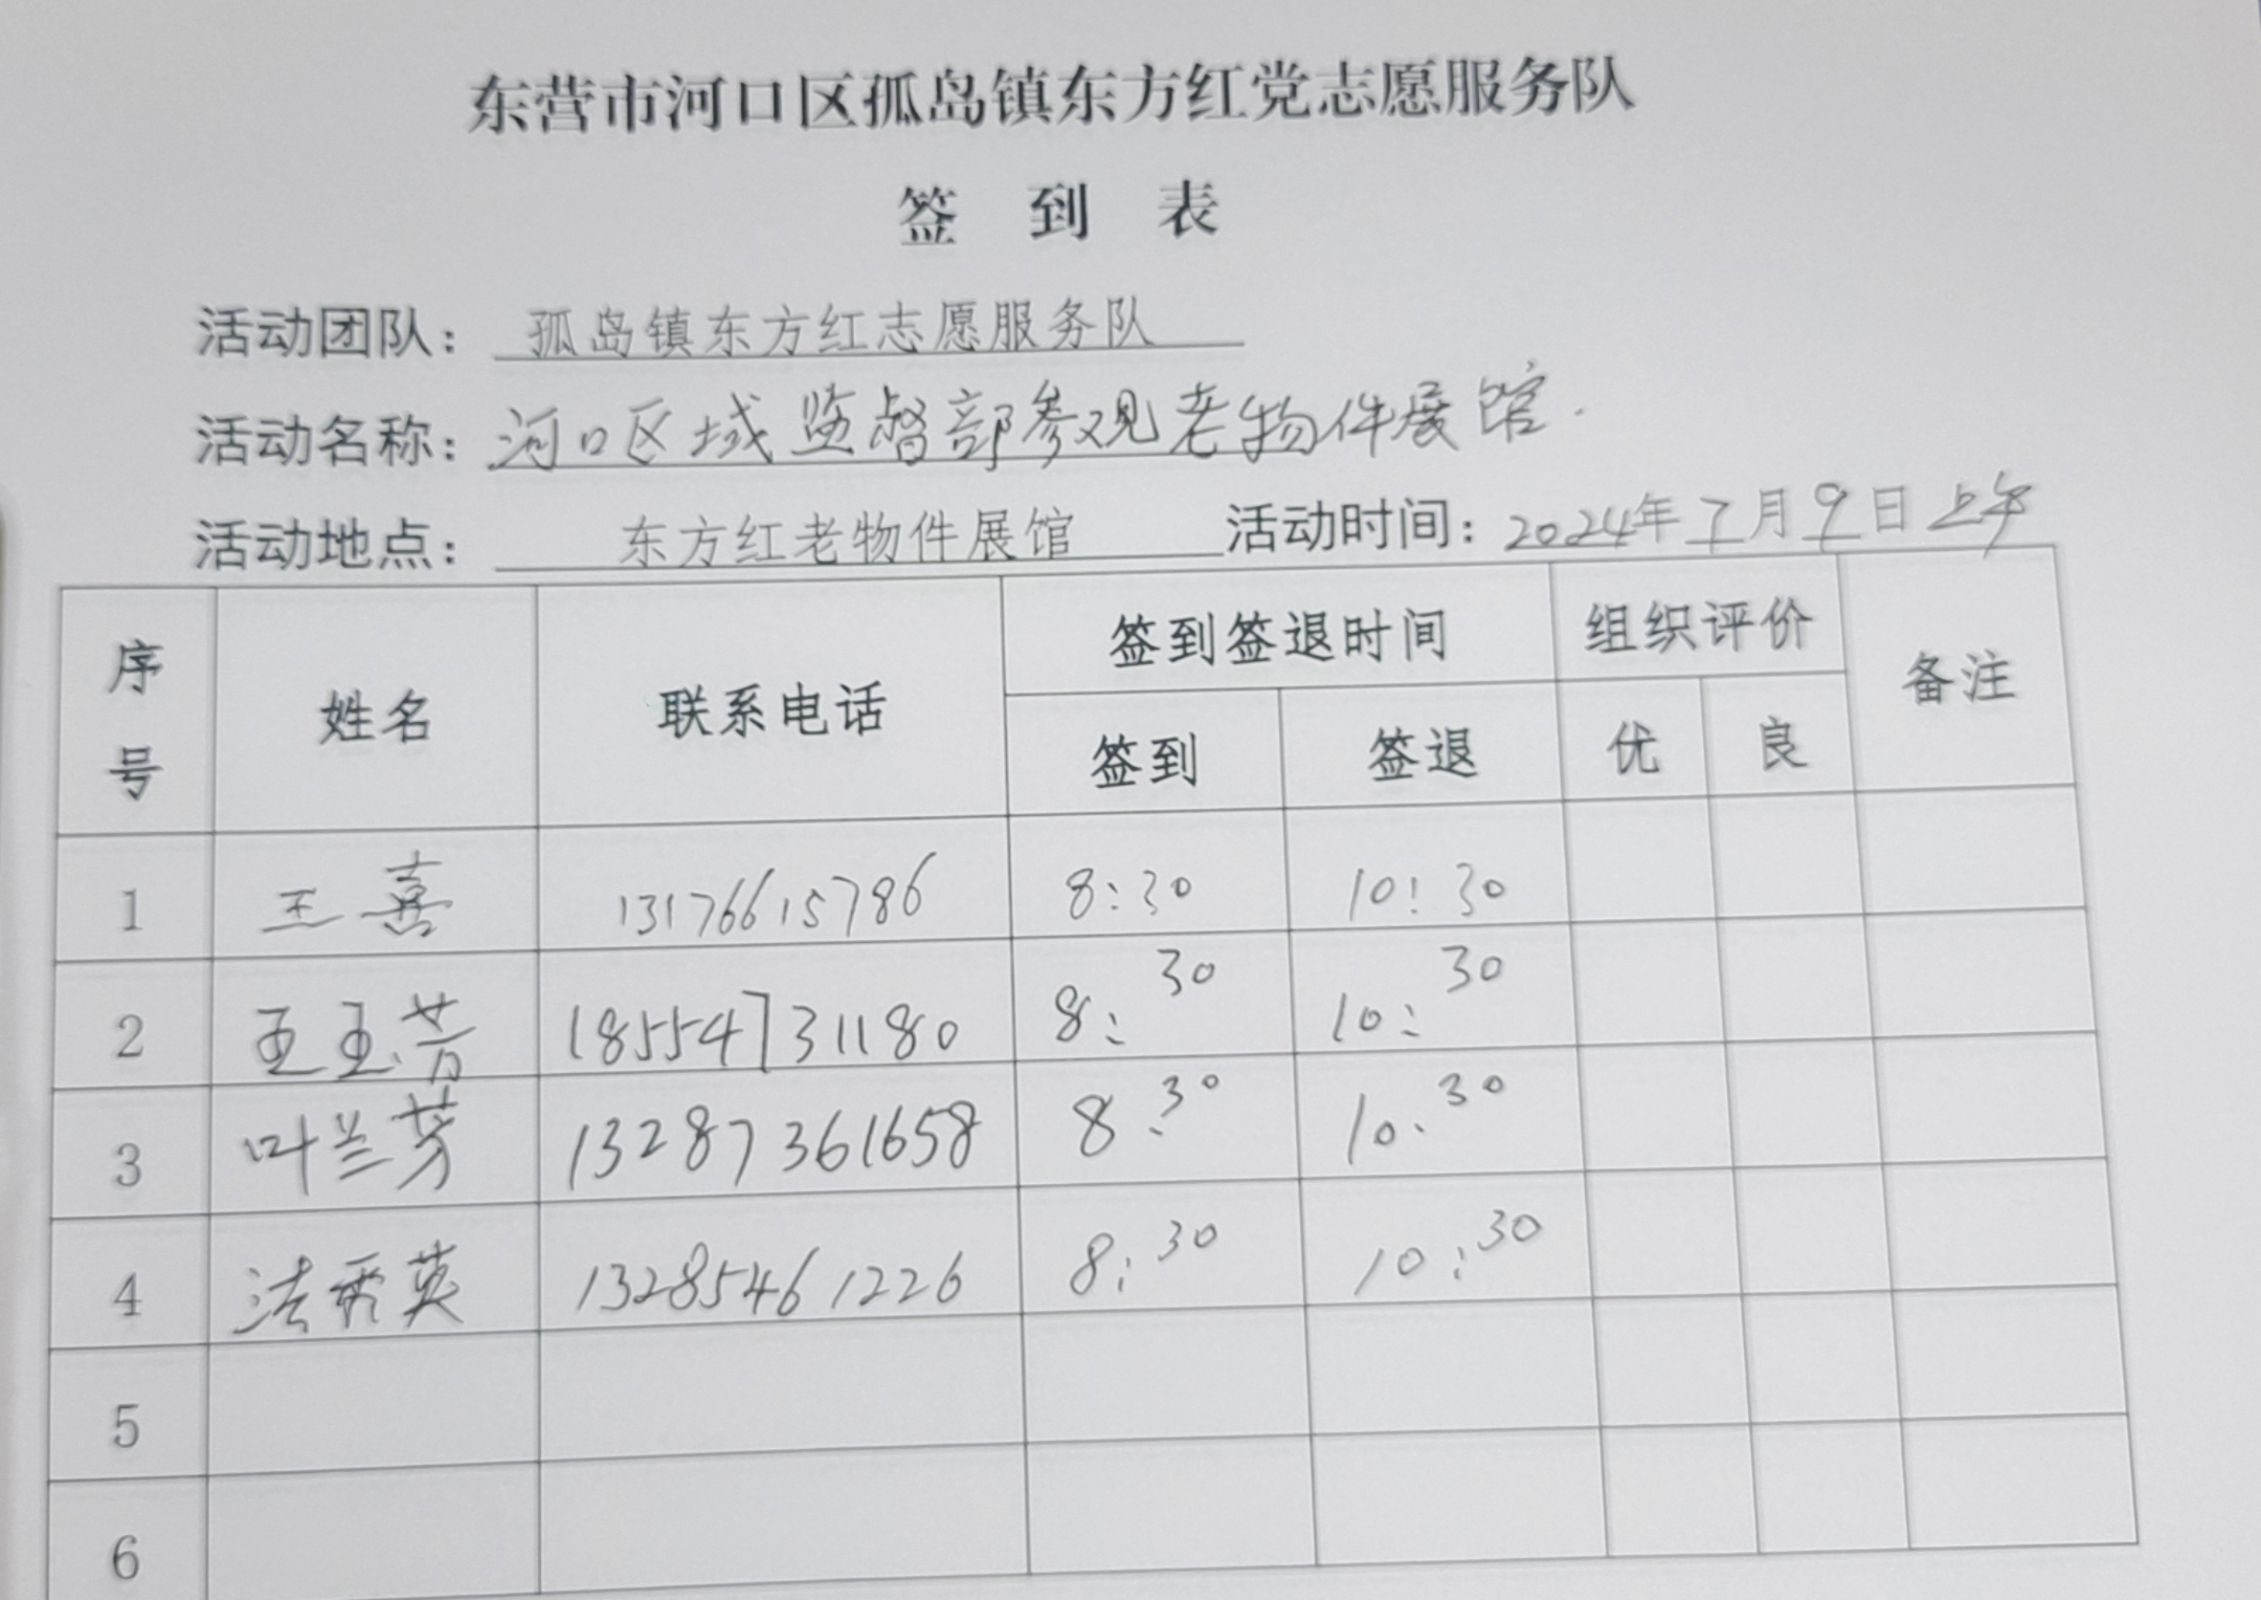 东营市河口区孤岛镇东方红党志愿服务队
签 到 表
活动团队：孤岛镇东方红志愿服务队
活动名称：河口区域监督部参观老物件展馆.
活动地点：东方红老物件展馆 活动时间：2024年7月9日上午
序号 姓名 联系电话 签到签退时间 组织评价 备注
签到 签退 优 良
1 王喜 13176615786 8:30 10:30
2 王玉芳 18554731180 8:30 10:30
3 叶兰芳 13287361658 8:30 10:30
4 法秀英 13285461226 8:30 10:30
5
6